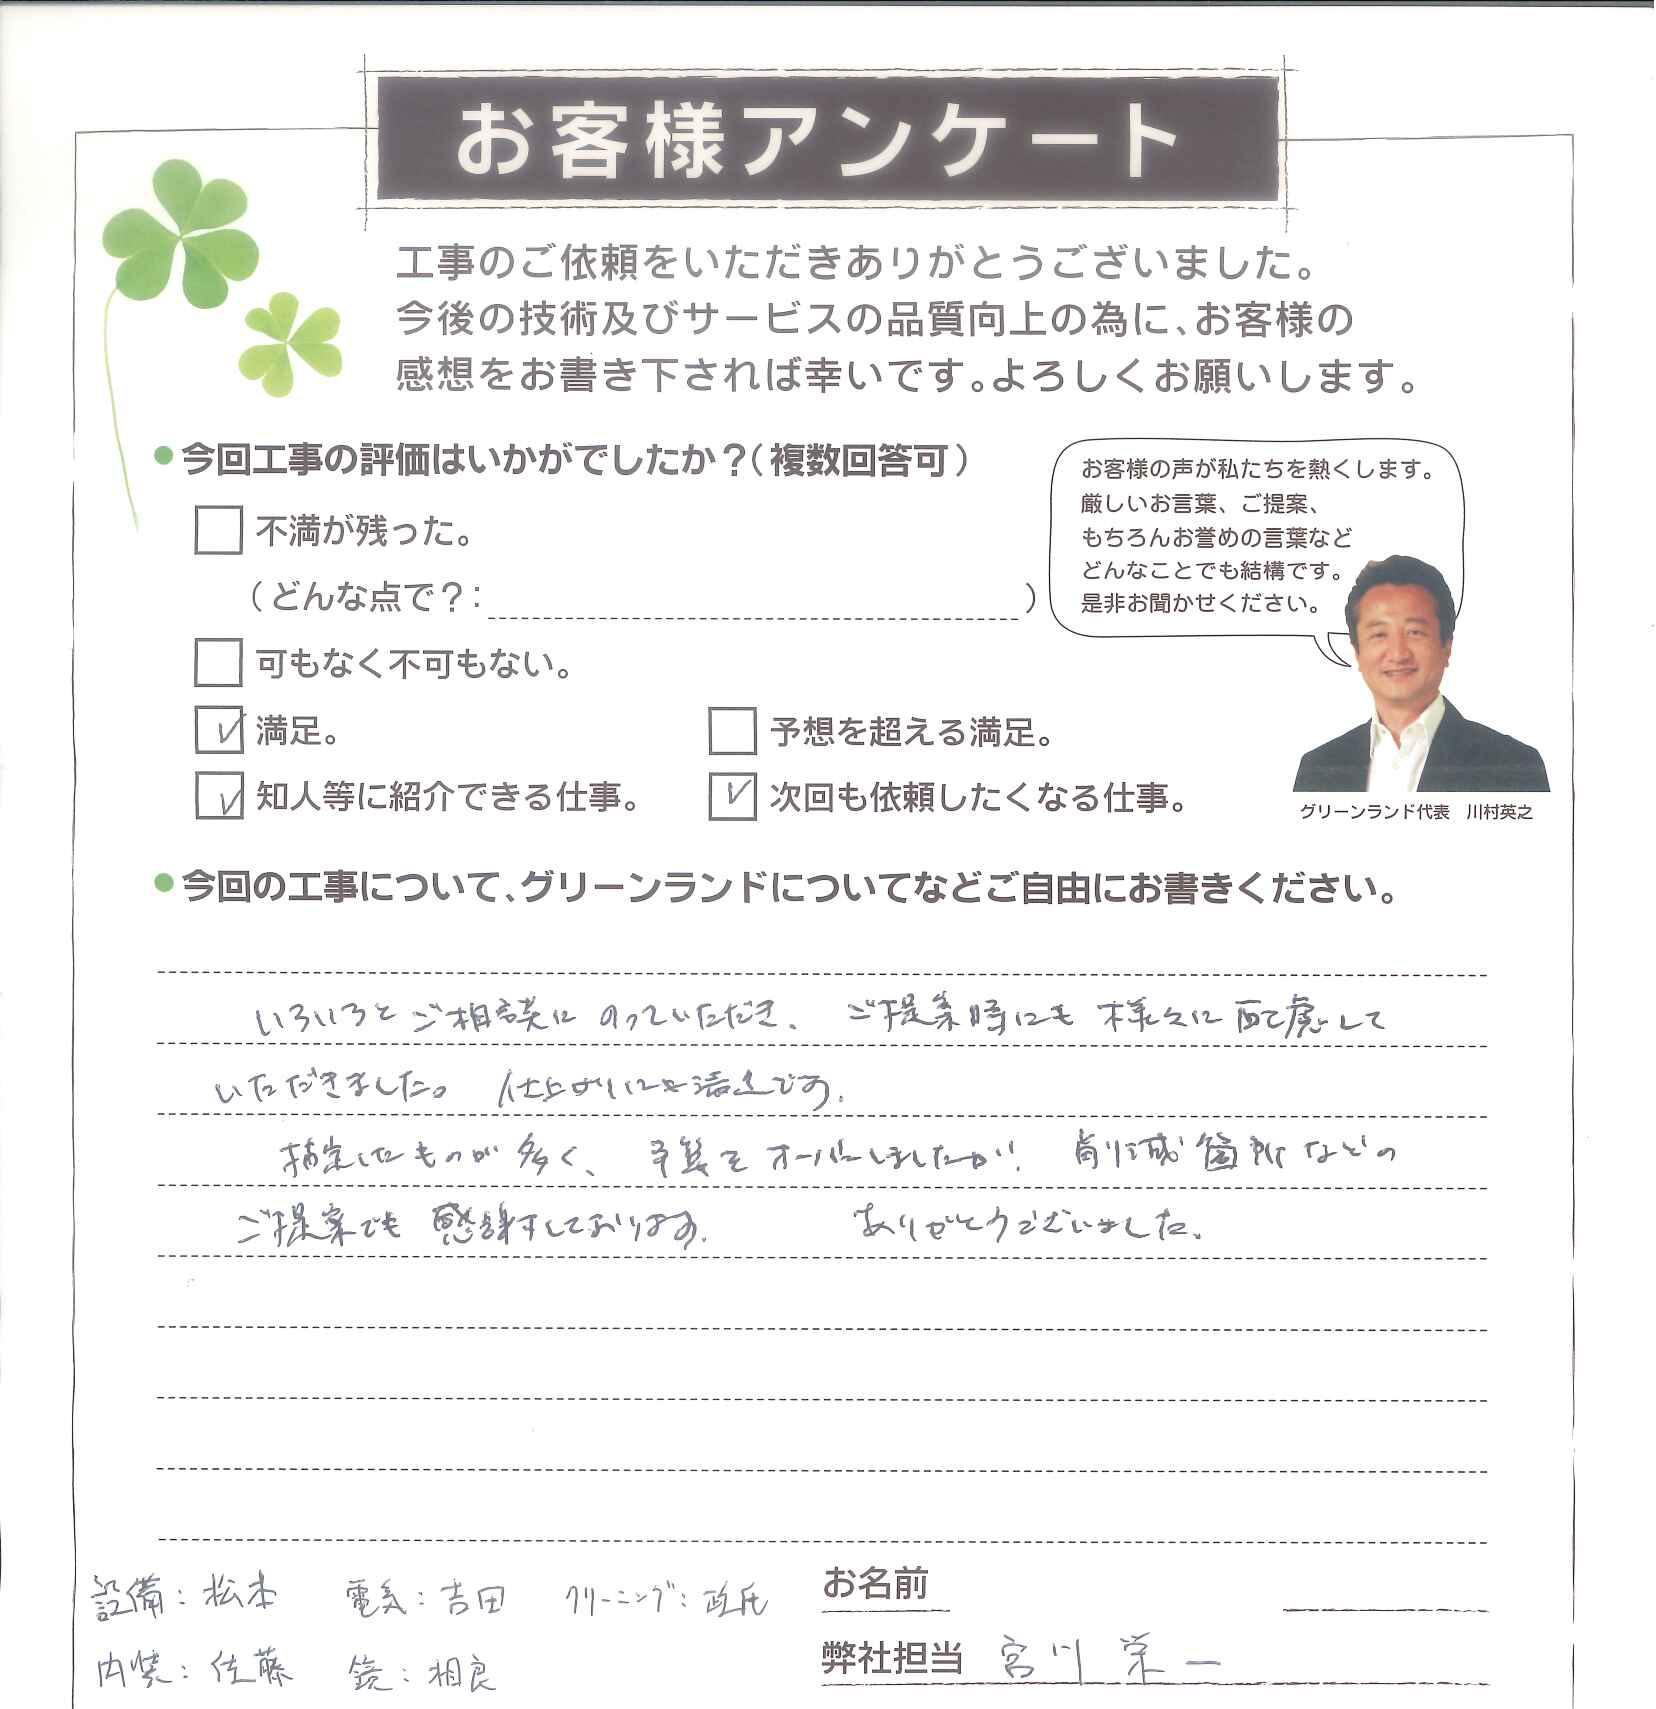 お客様アンケート
工事のご依頼をいただきありがとうございました。
今後の技術及びサービスの品質向上の為に、お客様の
感想をお書き下されば幸いです。よろしくお願いします。
今回工事の評価はいかがでしたか？（複数回答可）
不満が残った。
（どんな点で？： ）
可もなく不可もない。
満足。
予想を超える満足。
知人等に紹介できる仕事。
次回も依頼したくなる仕事。
お客様の声が私たちを熱くします。
厳しいお言葉、ご提案、
もちろんお誉めの言葉など
どんなことでも結構です。
是非お聞かせください。
グリーンランド代表 川村英之
今回の工事について、グリーンランドについてなどご自由にお書きください。
いろいろとご相談にのっていただき、ご提案時にも様々に配慮して
いただきました。 仕上がりにも満足です。
指定したものが多く、予算をオーバーしましたが、削減箇所などの
ご提案でも感謝しております。 ありがとうございました。
設備：松本 電気：吉田 クリーニング：
内装：佐藤 鏡：相良
お名前
弊社担当 宮川 栄一